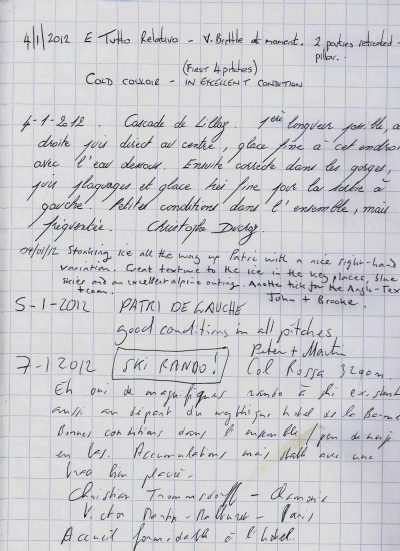 4/1/2012 E Tutto Relativo - V. Brittle at moment. 2 parties retreated - pillar.
(First 4 pitches)
COLD COULOIR - IN EXCELLENT CONDITION
4-1-2012. Cascade de Lillaz. 1ère longueur possible, a
droite puis direct au centre, glace fine à cet endroi
avec l'eau dessous. Ensuite correcte dans les gorges,
puis plaquages et glace très fine pour la sortie à
gauche. Petites conditions dans l'ensemble, mais
fréquentée. Christophe
04/01/12 Stonking ice all the way up Patri with a nice right-hand
variation. Great texture to the ice in the key places, blue
skies and an excellent alpine outing. Another tick for the Anglo-Tex
team. John + Brooke.
5-1-2012 PATRI DE GAUCHE
good conditions in all pitches
Peter + Martin
7-1 2012 SKI RANDO! Col Rossa 3290m.
Eh oui de magnifiques rando à ski existent
aussi au départ du mythique hotel de la Barme
Bonnes conditions dans l'ensemble / peu de neige
en bas. Accumulations mais stable avec une
trace bien placée.
Christian Trommsdorff - Chamonix
Victor - Paris
Accueil formidable à l'hotel.